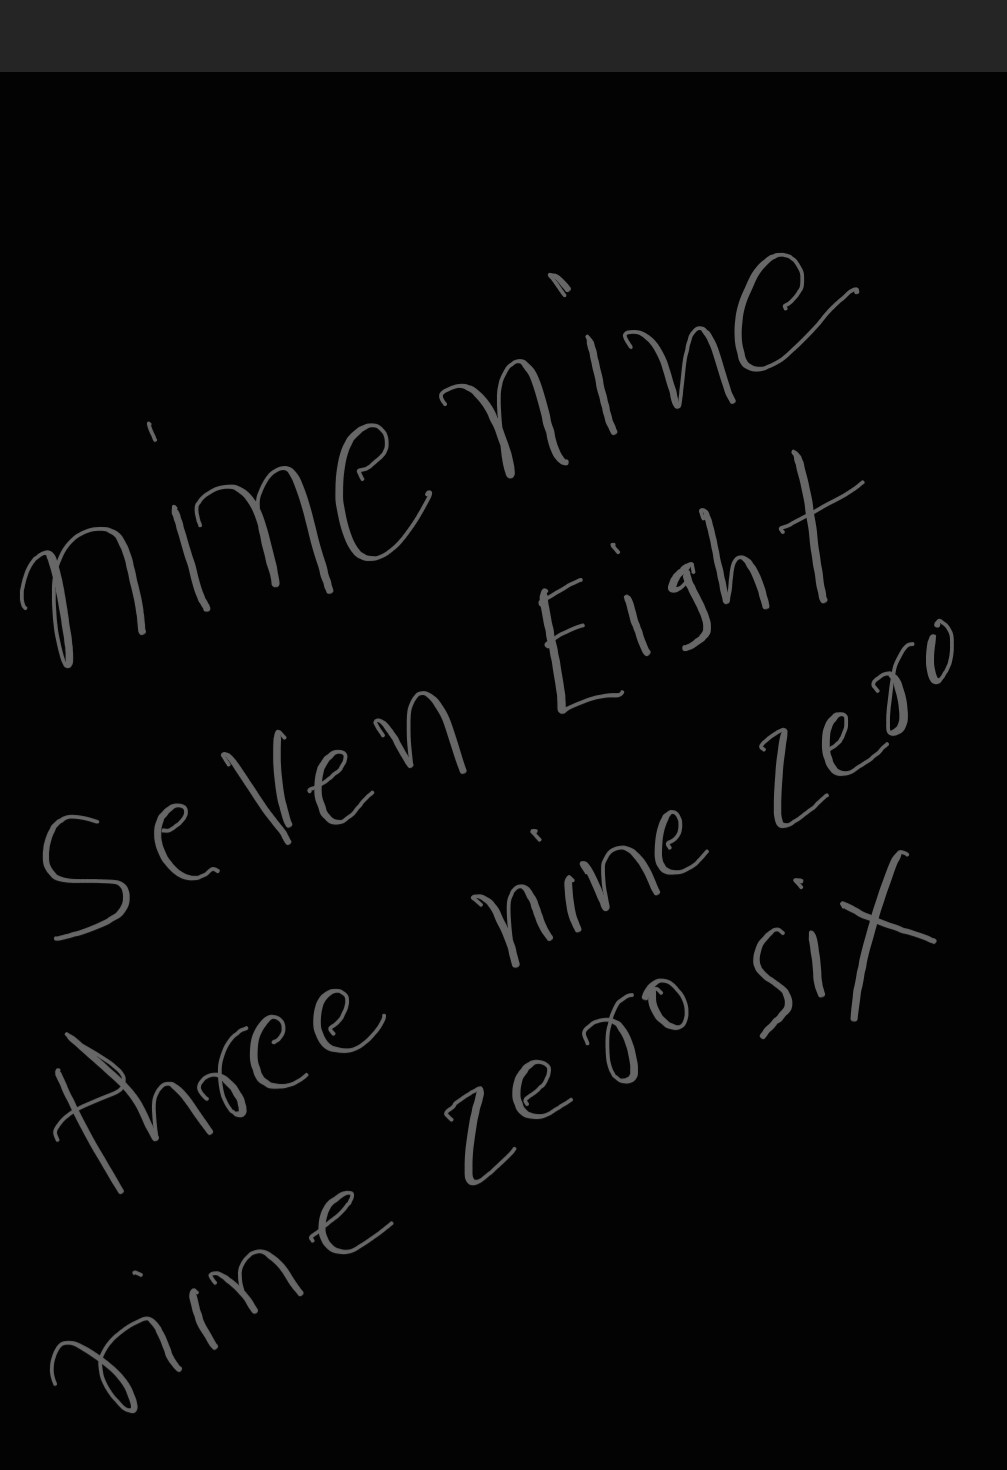 nine nine
Seven Eight
three nine zero
nine zero six